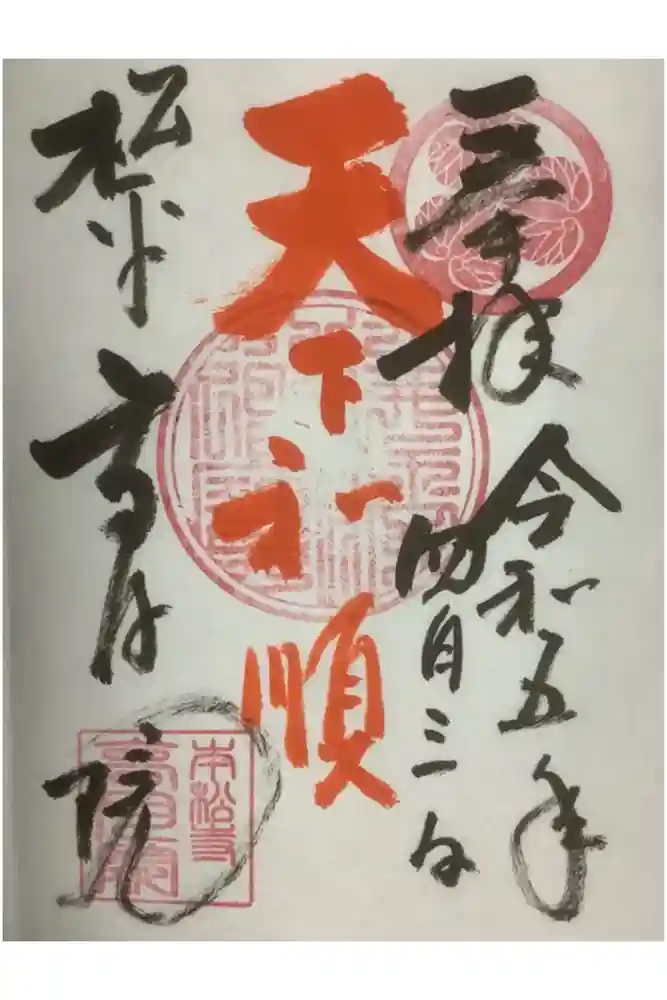 奉拝 令和五年
四月三日
天下和順
松平 高月院
高月院